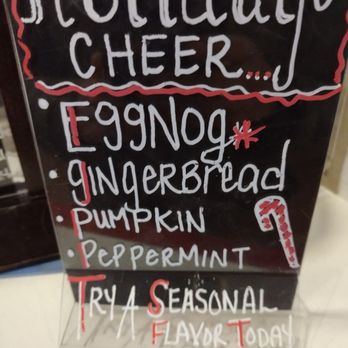 Holiday
CHEER...
• EggNog*
• gingerbread
• Pumpkin
• Peppermint
Try A Seasonal
Flavor Today